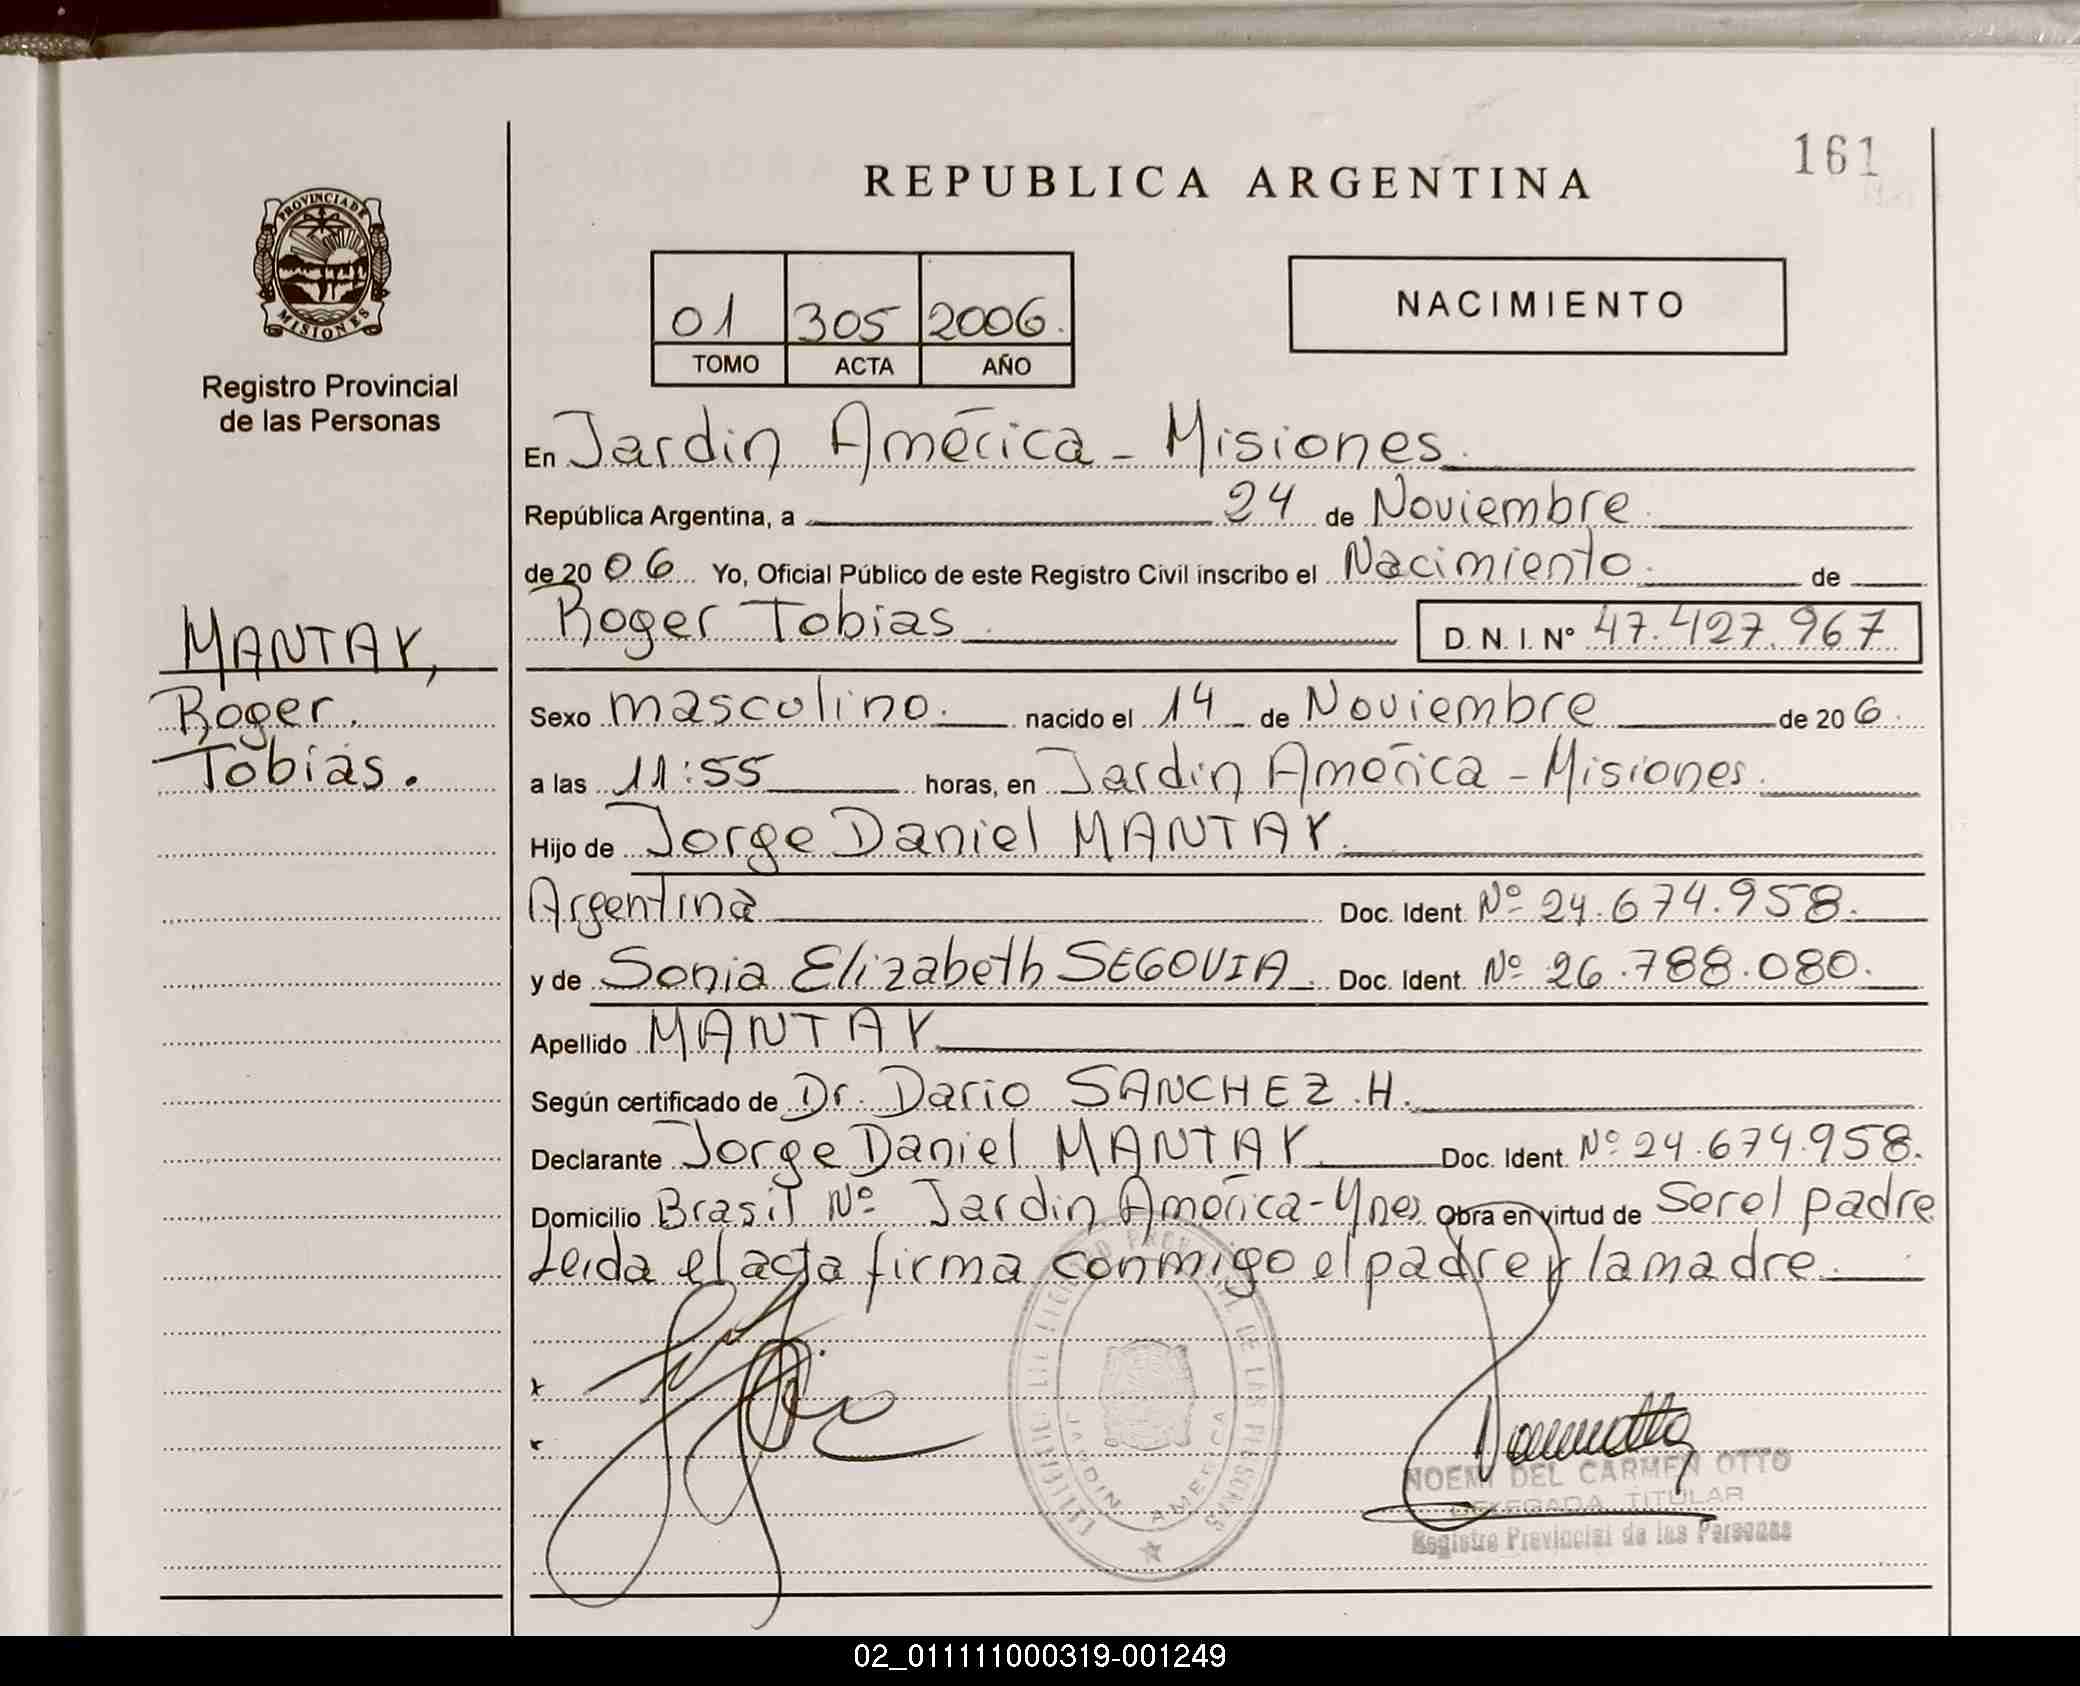 161
REPUBLICA ARGENTINA
PROVINCIA DE MISIONES
Registro Provincial
de las Personas
01 305 2006.
TOMO ACTA AÑO
NACIMIENTO
En Jardin América - Misiones.
República Argentina, a 24 de Noviembre
de 20 06 Yo, Oficial Público de este Registro Civil inscribo el Nacimiento. de
Roger Tobias D. N. I. Nº 47.427.967
MANTAY,
Roger.
Tobias.
Sexo masculino. nacido el 14 de Noviembre de 20 6.
a las 11:55 horas, en Jardin América - Misiones.
Hijo de Jorge Daniel MANTAY.
Argentina Doc. Ident. Nº 24.674.958.
y de Sonia Elizabeth SEGOVIA. Doc. Ident. Nº 26.788.080.
Apellido MANTAY
Según certificado de Dr. Dario SANCHEZ .H.
Declarante Jorge Daniel MANTAY Doc. Ident. Nº 24.674.958.
Domicilio Brasil Nº Jardin América- Obra en virtud de Ser el padre
Leida el acta firma conmigo el padre y la madre.
REGISTRO PROVINCIAL DE LAS PERSONAS
JARDIN AMERICA
NOEMI DEL CARMEN OTTO
DELEGADA TITULAR
Registro Provincial de las Personas
02_011111000319-001249